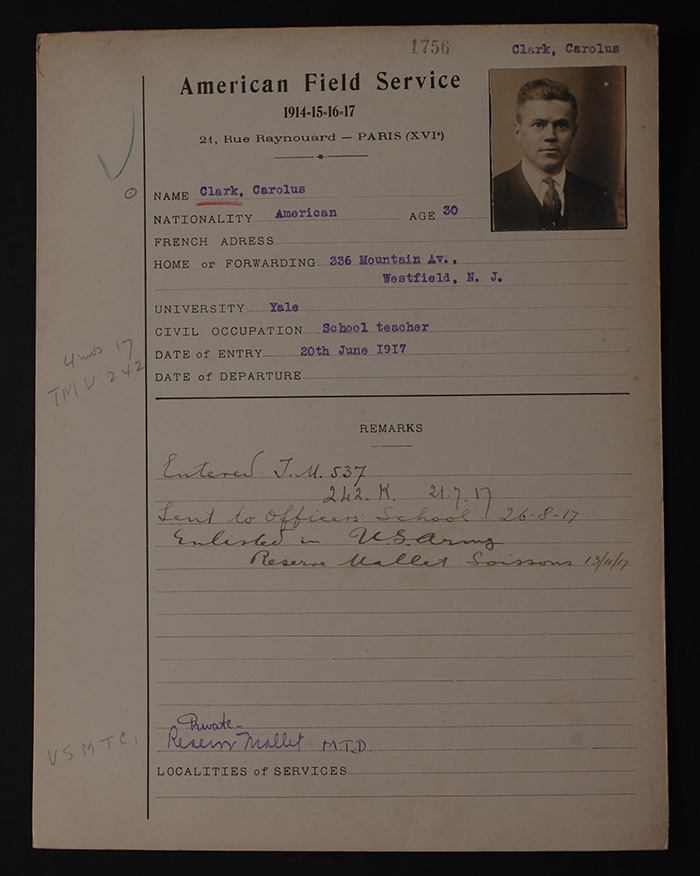 1756
Clark, Carolus
American Field Service
1914-15-16-17
21, Rue Raynouard — PARIS (XVIᵉ)
NAME Clark, Carolus
NATIONALITY American AGE 30
FRENCH ADRESS
HOME or FORWARDING 336 Mountain Av.,
Westfield, N. J.
UNIVERSITY Yale
CIVIL OCCUPATION School teacher
4 mos 17
DATE of ENTRY 20th June 1917
TMU 242
DATE of DEPARTURE
REMARKS
Entered T.M. 537
242. K. 21.7.17
Sent to Officers School 26-8-17
Enlisted in U.S. Army
Reserve Mallet Soissons 13/11/17
Private
USMTC.
Reserve Mallet. M.T.D.
LOCALITIES of SERVICES